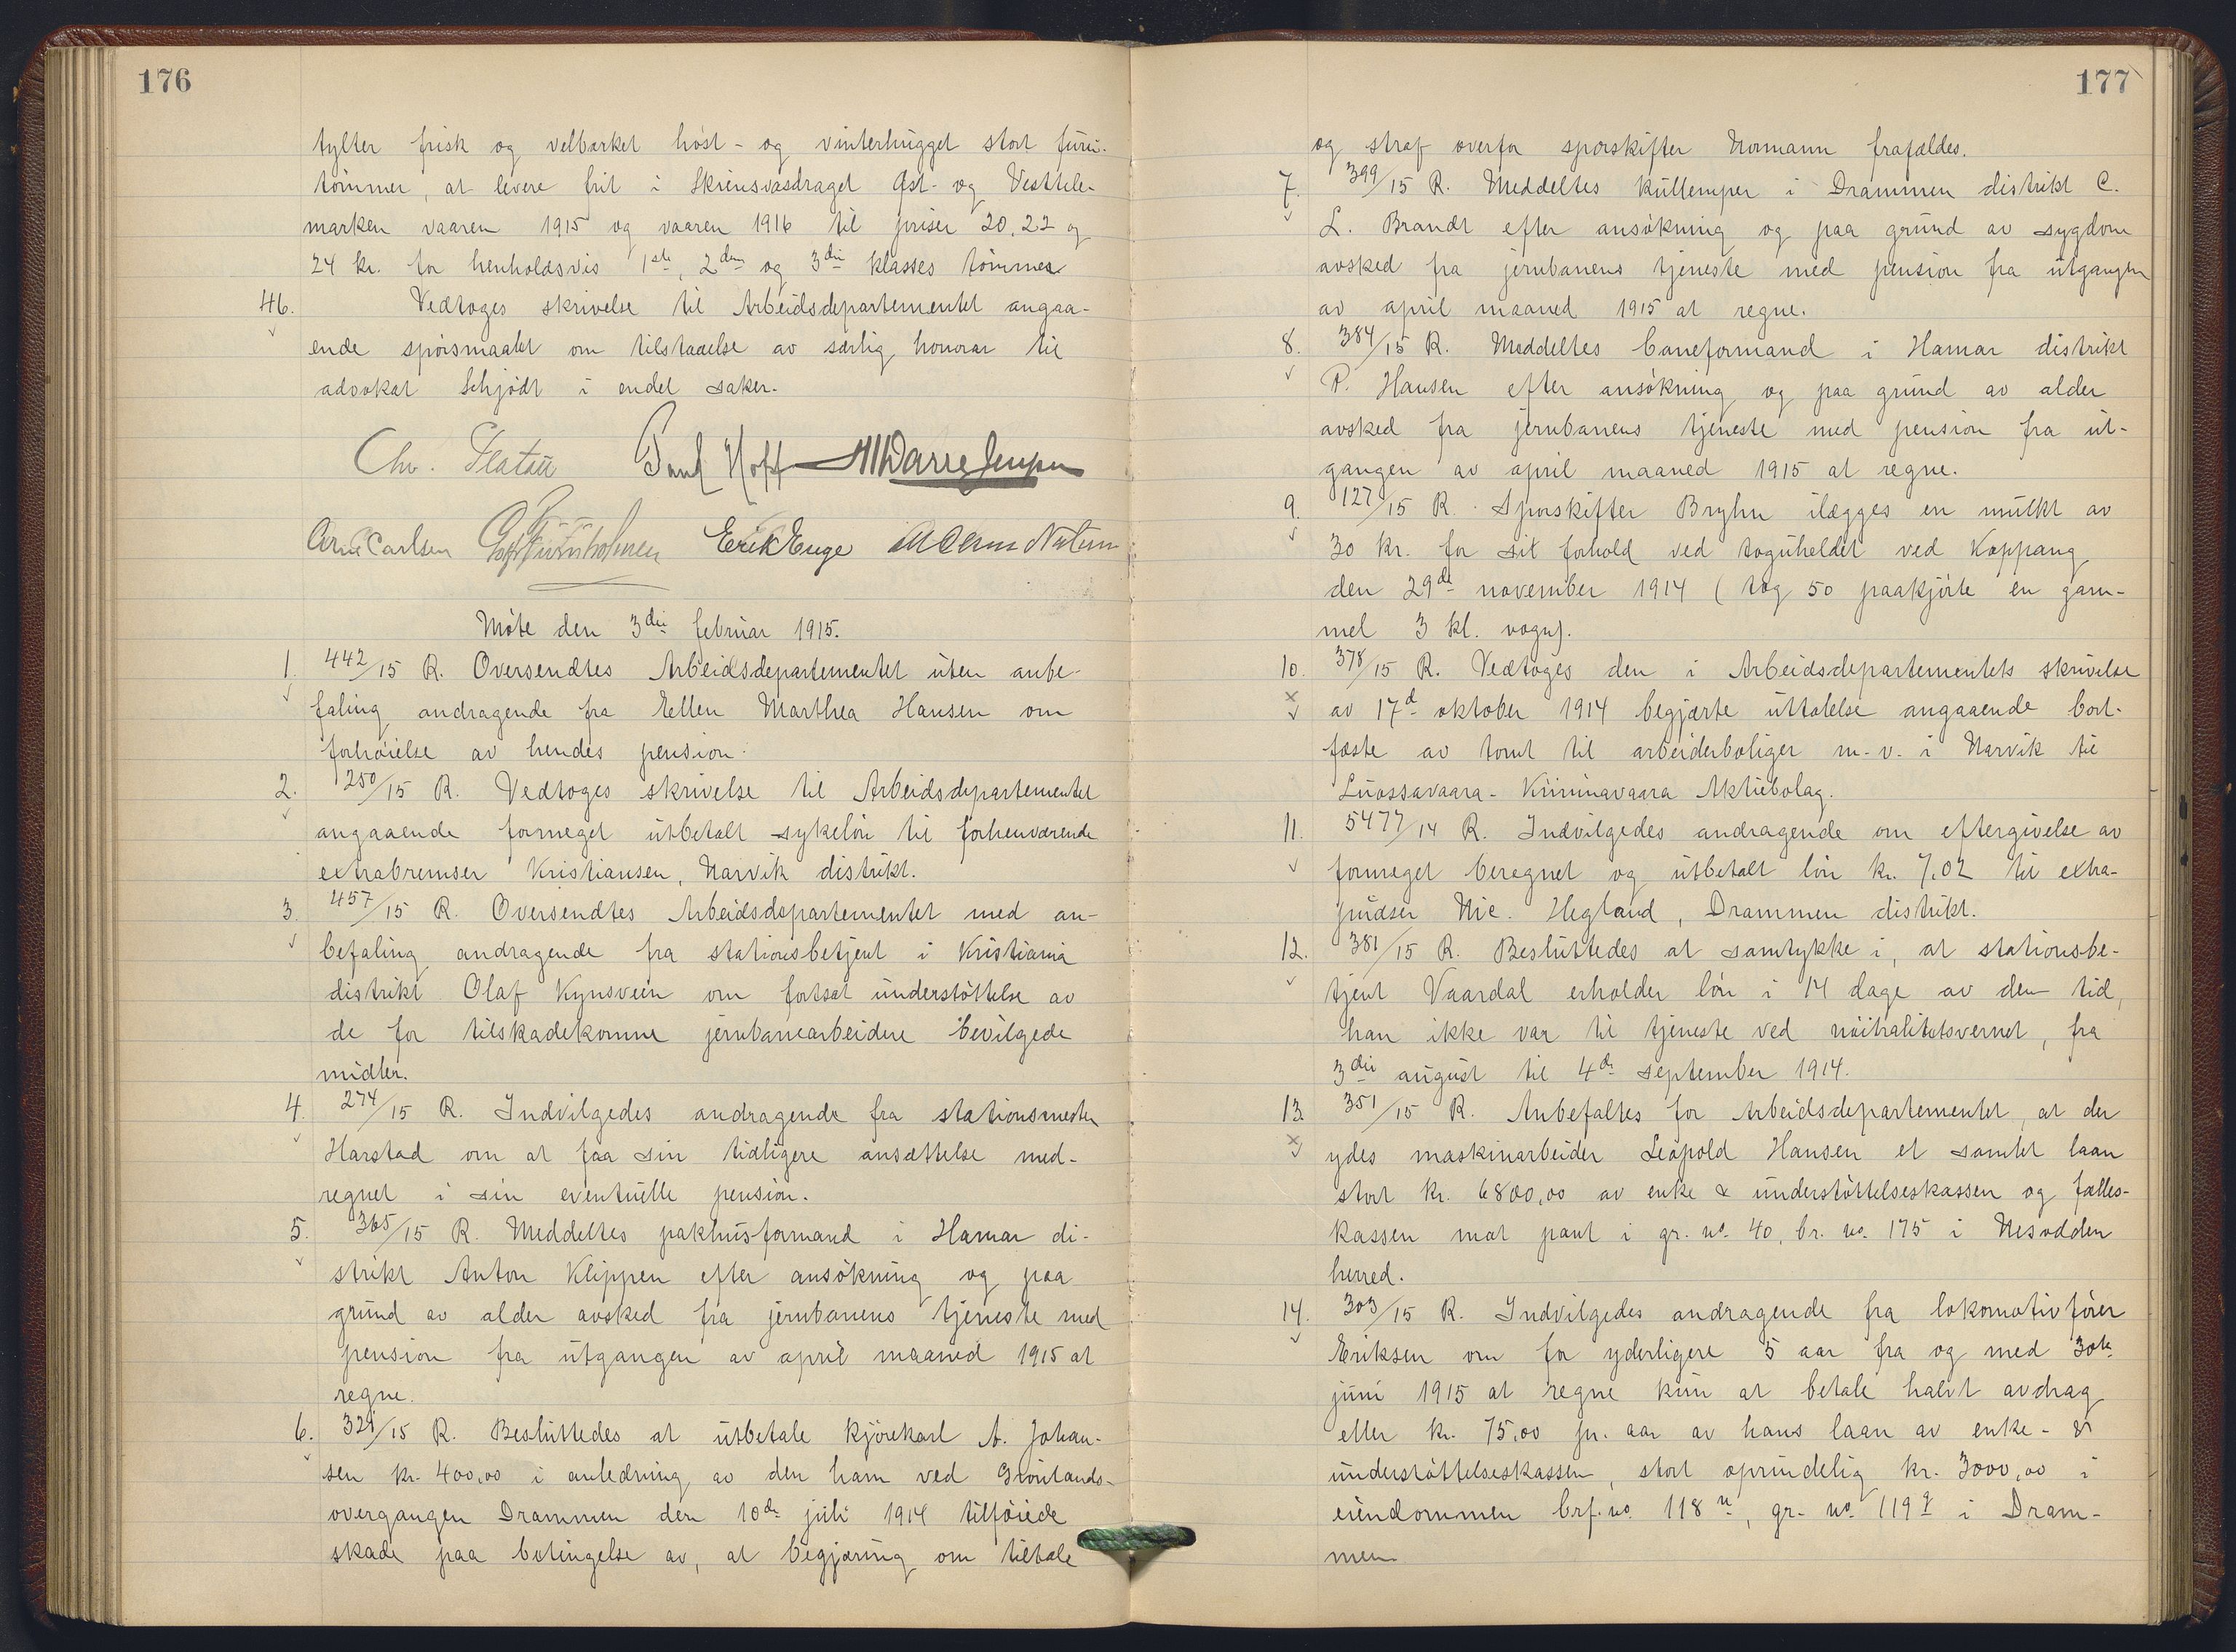 176
tylter frisk og velbarket høst- og vinterhugget stort furu-
tømmer, at levere frit i Skiensvasdraget Øst- og Vesttele-
marken vaaren 1915 og vaaren 1916 til priser 20, 22 og
24 kr. for henholdsvis 1ste, 2den og 3die klasses tømmer.
46. Vedtoges skrivelse til Arbeidsdepartementet angaa-
ende spørsmaalet om tilstaaelse av særlig honorar til
advokat Schjødt i endel saker.
Chr. Platou Paul Hoff
Arne Carlsen Erik Enge
Møte den 3die februar 1915.
1. 442/15 R. Oversendtes Arbeidsdepartementet uten anbe-
faling andragende fra Ellen Marthea Hansen om
forhøielse av hendes pension.
2. 250/15 R. Vedtoges skrivelse til Arbeidsdepartementet
angaaende formeget utbetalt sykeløn til forhenværende
extrabremser Kristiansen, Narvik distrikt.
3. 457/15 R. Oversendtes Arbeidsdepartementet med an-
befaling andragende fra stationsbetjent i Kristiania
distrikt Olaf Kynsveen om fortsat understøttelse av
de for tilskadekomne jernbanearbeidere bevilgede
midler.
4. 274/15 R. Indvilgedes andragende fra stationsmester
Harstad om at faa sin tidligere ansættelse med-
regnet i sin eventuelle pension.
5. 365/15 R. Meddeltes pakhusformand i Hamar di-
strikt Anton Klippen efter ansøkning og paa
grund av alder avsked fra jernbanens tjeneste med
pension fra utgangen av april maaned 1915 at
regne.
6. 321/15 R. Besluttedes at utbetale kjørekarl A. Johan-
sen kr. 400,00 i anledning av den ham ved Grønlands-
overgangen Drammen den 10de juli 1914 tilføiede
skade paa betingelse av, at begjæring om tiltale
177
og straf overfor sporskifter Normann frafaldes.
7. 399/15 R. Meddeltes kullemper i Drammen distrikt C.
L. Brandt efter ansøkning og paa grund av sygdom
avsked fra jernbanens tjeneste med pension fra utgangen
av april maaned 1915 at regne.
8. 384/15 R. Meddeltes baneformand i Hamar distrikt
P. Hansen efter ansøkning og paa grund av alder
avsked fra jernbanens tjeneste med pension fra ut-
gangen av april maaned 1915 at regne.
9. 127/15 R. Sporskifter Bryhn ilægges en mulkt av
30 kr. for sit forhold ved toguheldet ved Koppang
den 29de november 1914 (tog 50 paakjørte en gam-
mel 3 kl. vogn).
10. 378/15 R. Vedtoges den i Arbeidsdepartementets skrivelse
av 17de oktober 1914 begjærte uttalelse angaaende bort-
fæste av tomt til arbeiderboliger m.v. i Narvik til
Luossavaara-Kiirunavaara Aktiebolag.
11. 5477/14 R. Indvilgedes andragende om eftergivelse av
formeget beregnet og utbetalt løn kr. 7,02 til extra-
pudser Nic. Hegland, Drammen distrikt.
12. 381/15 R. Besluttedes at samtykke i, at stationsbe-
tjent Vaardal erholder løn i 14 dage av den tid,
han ikke var til tjeneste ved nøitralitetsvernet, fra
3die august til 4de september 1914.
13. 351/15 R. Anbefaltes for Arbeidsdepartementet, at der
ydes maskinarbeider Leopold Hansen et samlet laan
stort kr. 6800,00 av enke & understøttelseskassen og fælles-
kassen mot pant i gr. no. 40, br. no. 175 i Nesodden
herred.
14. 303/15 R. Indvilgedes andragende fra lokomotivfører
Eriksen om for yderligere 5 aar fra og med 30te
juni 1915 at regne kun at betale halvt avdrag
eller kr. 75,00 pr. aar av hans laan av enke- &
understøttelseskassen, stort oprindelig kr. 3000,00 i
eiendommen brf. no. 118 , gr. no. 119 i Dram-
men